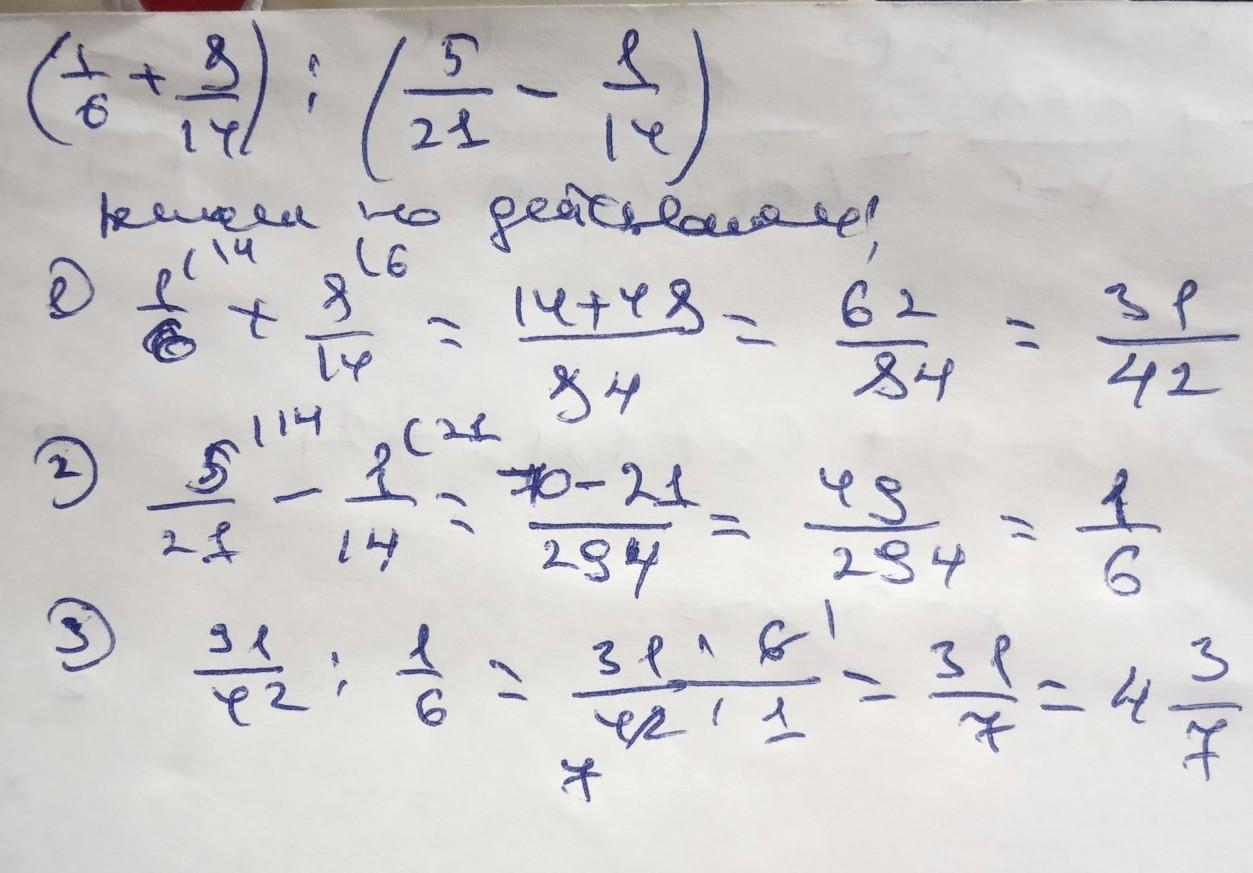 (1/6 + 8/14) : (5/21 - 1/14)
решаем по действиям!
① 1/6 (14 + 8/14 (6 = 14+48/84 = 62/84 = 31/42
② 5/21 (14 - 1/14 (21 = 70-21/294 = 49/294 = 1/6
③ 31/42 : 1/6 = 31 · 6/42 · 1 = 31/7 = 4 3/7
7